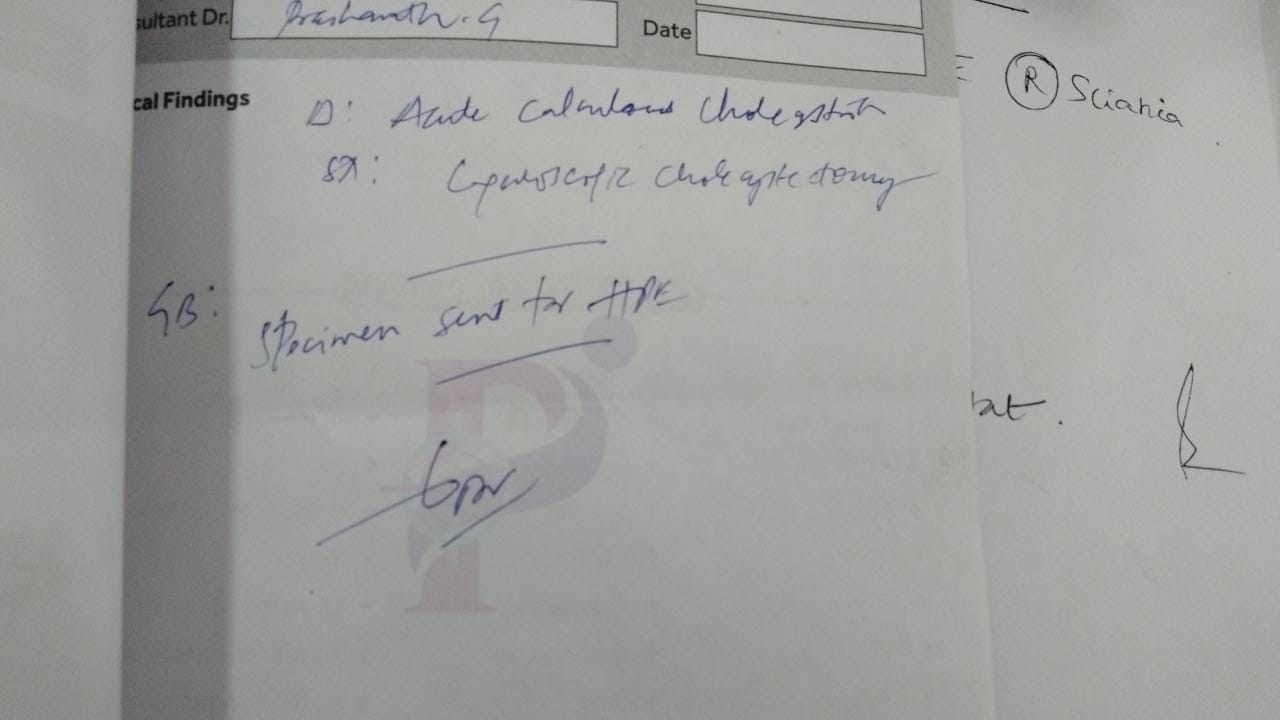 sultant Dr. Prashanth. G
Date
cal Findings
D: Acute Calculous Cholecystitis
SX: Laparoscopic Cholecystectomy
GB: Specimen sent for HPE
R Sciatica
bat.